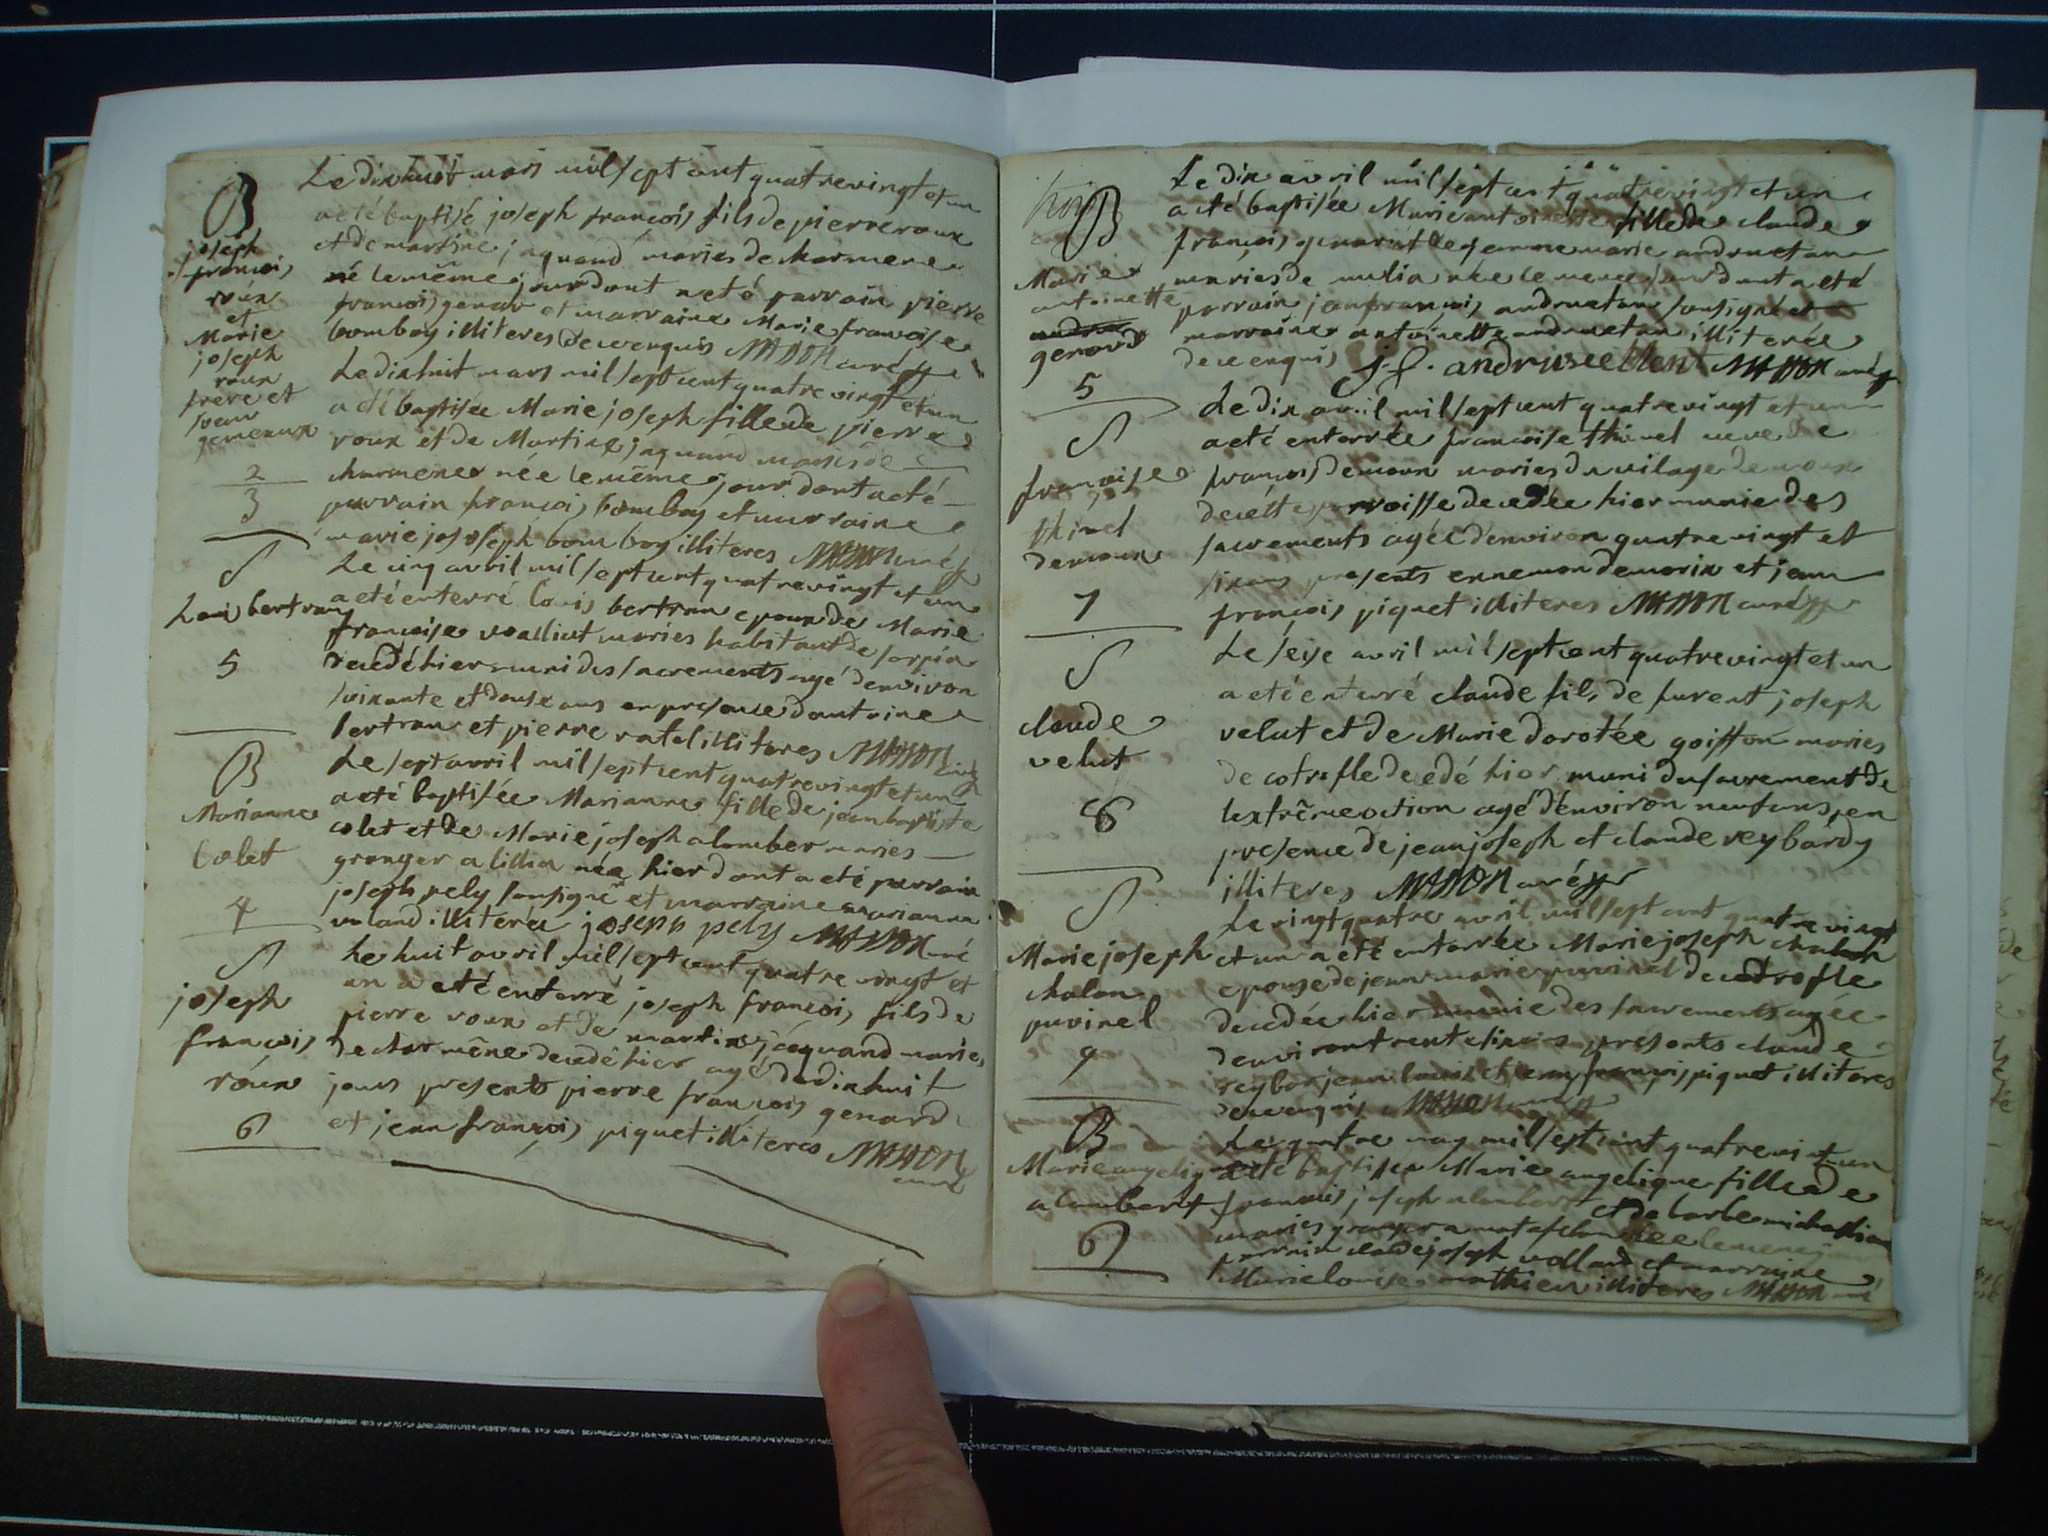 B
joseph
francois
roux
et
Marie
joseph
roux
frere et
soeur
gemeaux
2
3
Le dix huit mars mil sept cent quatre vingt et un
a eté baptisé joseph françois fils de pierre roux
et de martine jaquand maries de charmene
né le même jour dont a eté parrain pierre
francois genar et marraine Marie francoise
bomboy illiteres de ce enquis MASSON curé
Le dix huit mars mil sept cent quatre vingt et un
a eté baptisée Marie joseph fille de pierre
roux et de Martine jaquand mariés de
charmene née le même jour dont a eté
parrain françois bomboy et marraine
marie joseph bomboy illiteres MASSON curé
S
Loui bertran
5
Le cinq avril mil sept cent quatre vingt et un
a eté enterré Louis bertran epoux de Marie
francoise maries habitant de
decedé hier muni des sacrements agé denviron
soixante et douze ans en presence dantoine
bertran et pierre ratel illiteres MASSON curé
B
Marianne
Colet
4
Le sept avril mil sept cent quatre vingt et un
a eté baptisée Marianne fille de jean baptiste
colet et de Marie joseph alomber maries
granger a lilia née hier dont a eté parrain
joseph pely soussigné et marraine marianne
voland illiterée joseph pely MASSON curé
S
joseph
francois
roux
6
Le huit avril mil sept cent quatre vingt et
un a eté enterré joseph françois fils de
pierre roux et de martine jaquand maries
de charmène decedé hier agé de dix huit
jours presents pierre francois genard
et jean françois piquet illiteres MASSON
curé
B
Marie
antoinette
genard
5
Le dix avril mil sept cent quatre vingt et un
a eté baptisée Marie antoinette fille de claude
françois genard et de jeanne marie andruetan
maries de née le meme jour dont a eté
parrain jean francois andruetan soussigné et
marraine antoinette andruetan illiterée
de ce enquis j.f. MASSON curé
S
françoise
thinel
demoux
7
Le dix avril mil sept cent quatre vingt et un
a eté enterrée francoise thinel veuve de
françois demoux maries du vilage de
de cette parroisse decedée hier munie des
sacrements agée denviron quatre vingt et
six ans presents ennemon et jean
françois piquet illiteres MASSON curé
S
claude
velut
8
Le seize avril mil sept cent quatre vingt et un
a eté enterré claude fils de furent joseph
velut et de Marie dorotée goiffon maries
de cotrofle decedé hier muni du sacrement de
lextrême oction agé denviron neuf ans en
presence de jean joseph et claude reybardy
illiteres MASSON curé
S
Marie joseph
chalon
puvinel
9
Le vingt quatre avril mil sept cent quatre vingt
et un a eté enterrée Marie joseph chalon
epouse de jean marie puvinel de cotrofle
decedée hier munie des sacrements agée
denviron trente ans presents claude
jean louis et jean francois piquet illiteres
de ce enquis MASSON curé
B
Marie angeliq
alombert
6
Le quatre may mil sept cent quatre vingt un
a eté baptisée Marie angelique fille de
francois joseph alombert et de barbe
maries granger a née le meme jour
parrain claude joseph volland et marraine
Marie louise mathieu illiteres MASSON curé